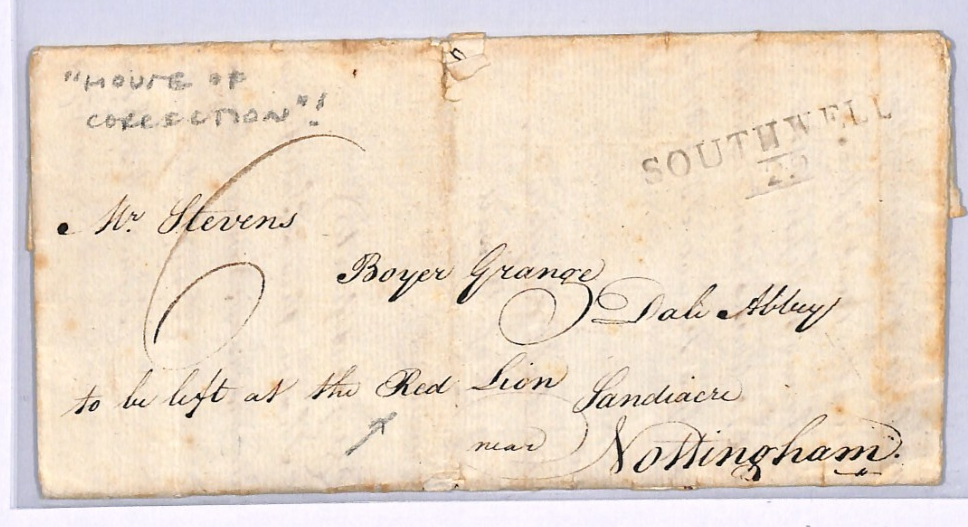 "HOUSE OF
CORRECTION"!
SOUTHWELL
6
Mr. Stevens
Boyer Grange
Dale Abbey
to be left at the Red Lion Sandiacre
near Nottingham.